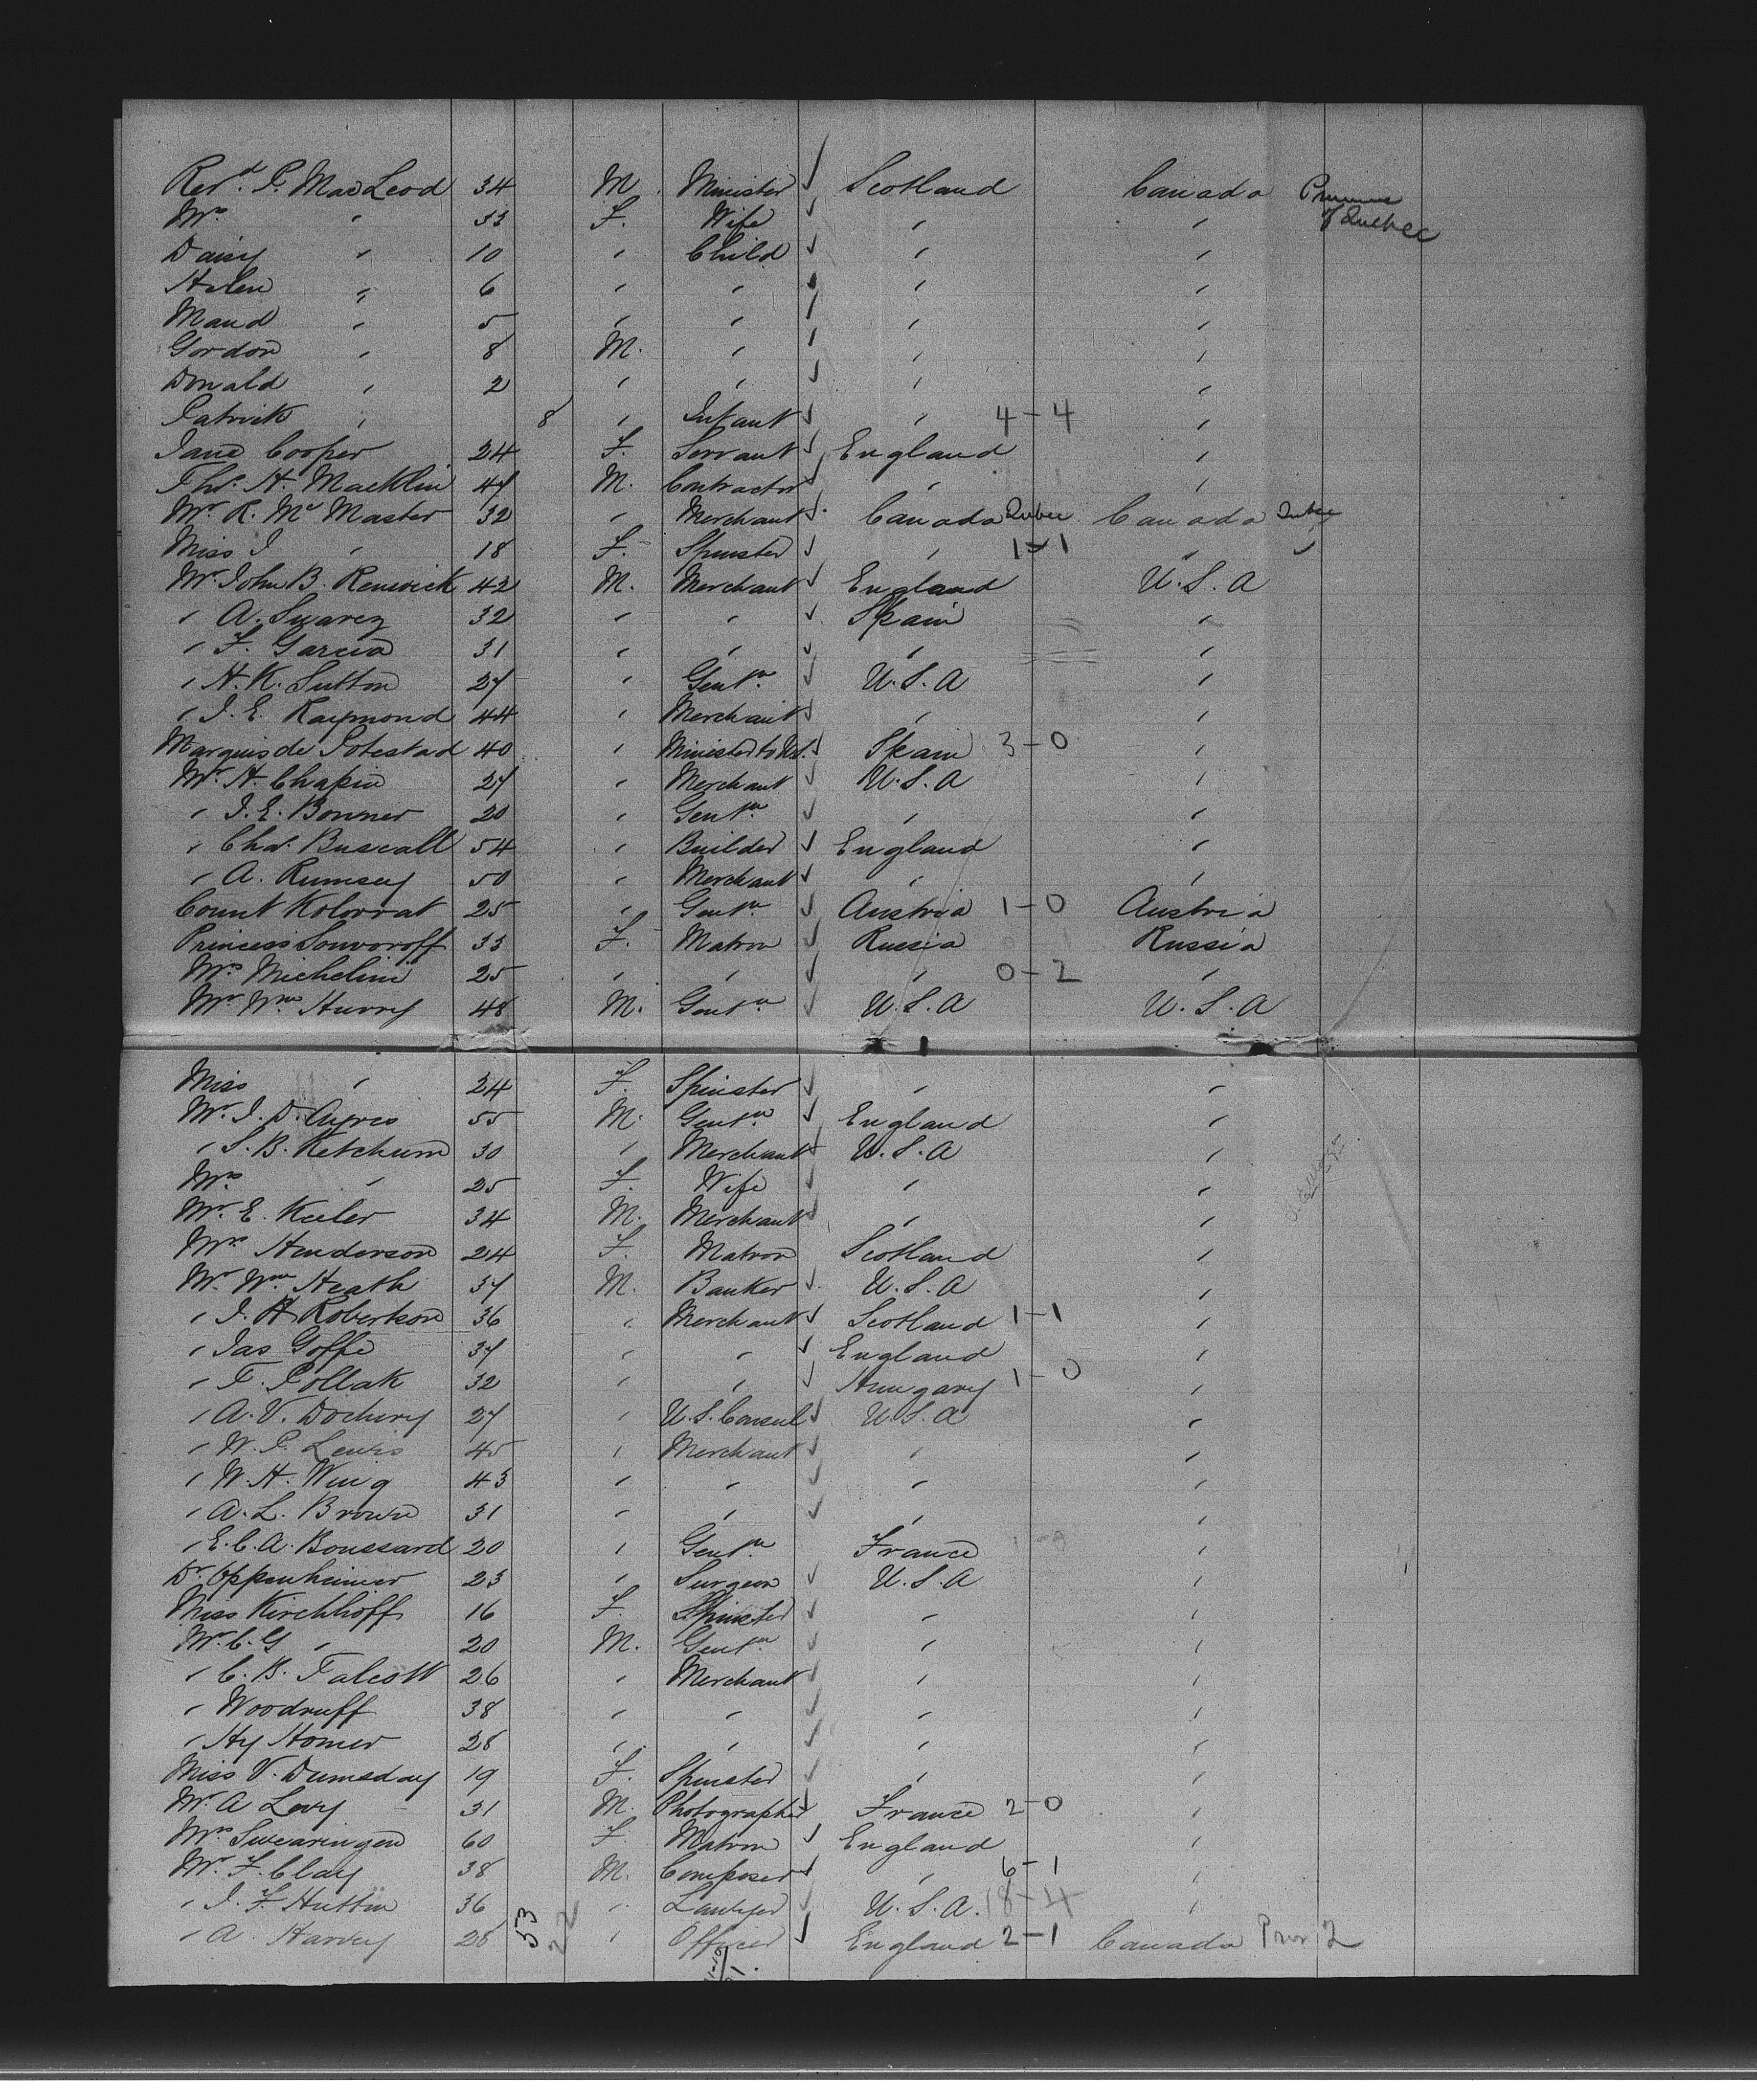 Revd. P. MacLeod 34 M. Minister ✓ Scotland Canada Province of Quebec
Mrs. " 33 F. Wife ✓ " "
Daisy " 10 " Child ✓ " "
Helen " 6 " " " "
Maud " 5 " " " "
Gordon " 8 M. " " "
Donald " 2 " " ✓ " "
Patrick " 8 " Infant ✓ " 4-4 "
Jane Cooper 24 F. Servant ✓ England "
Thos. H. Macklin 47 M. Contractor ✓ " "
Mr. R. McMaster 32 " Merchant ✓ Canada Quebec Canada Quebec
Miss J " 18 F. Spinster ✓ " 1-1 " "
Mr. John B. Renwick 42 M. Merchant ✓ England U.S.A
" A. Suarez 32 " " ✓ Spain "
" F. Garcia 31 " " ✓ " "
" H.K. Sutton 27 " Gentn. ✓ U.S.A "
" J.E. Raymond 44 " Merchant ✓ " "
Marquis de Potestad 40 " Minister to U.S. ✓ Spain 3-0 "
Mr. H. Chapin 27 " Merchant ✓ U.S.A "
" J.E. Bonner 20 " Gentn. ✓ " "
" Chas. Buscall 54 " Builder ✓ England "
" A. Rumsey 50 " Merchant ✓ " "
Count Kolovrat 25 " Gentn. ✓ Austria 1-0 Austria
Princess Souvoroff 33 F. Matron ✓ Russia Russia
Mrs. Michelini 25 " " ✓ " 0-2 "
Mr. Wm. Hurry 48 M. Gentn. ✓ U.S.A U.S.A
Miss " 24 F. Spinster ✓ " "
Mr. J.D. Ayres 55 M. Gentn. ✓ England "
" S.B. Ketchum 30 " Merchant ✓ U.S.A "
Mrs. " 25 F. Wife ✓ " "
Mr. E. Keeler 34 M. Merchant ✓ " "
Mrs. Henderson 24 F. Matron Scotland "
Mr. Wm. Heath 37 M. Banker ✓ U.S.A "
" J. H Robertson 36 " Merchant ✓ Scotland 1-1 "
" Jas Goffe 37 " " ✓ England "
" F. Pollak 32 " " ✓ Hungary 1-0 "
" A.V. Dockery 27 " U.S. Consul ✓ U.S.A "
" W.P. Lewis 45 " Merchant ✓ " "
" W.H. Wing 43 " " ✓ " "
" A.L. Brown 31 " " ✓ " "
" E.C.A. Boussard 20 " Gentn. France "
Dr. Oppenheimer 23 " Surgeon ✓ U.S.A "
Miss Kirchhoff 16 F. Spinster ✓ " "
Mr. C.G " 20 M. Gentn. ✓ " "
" C.B. Talcott 26 " Merchant ✓ " "
" Woodruff 38 " " ✓ " "
" Hy Homer 28 " " ✓ " "
Miss V. Dumsday 19 F. Spinster ✓ " "
Mr. A Levy 31 M. Photographer ✓ France 2-0 "
Mrs. Swearingen 60 F. Matron ✓ England "
Mr. F. Clay 38 M. Composer ✓ " 6-1 "
" J.F. Hutton 36 " Lawyer ✓ U.S.A. 18-4 "
" A. Harvey 28 53 22 " Officer ✓ England 2-1 Canada Prov 2